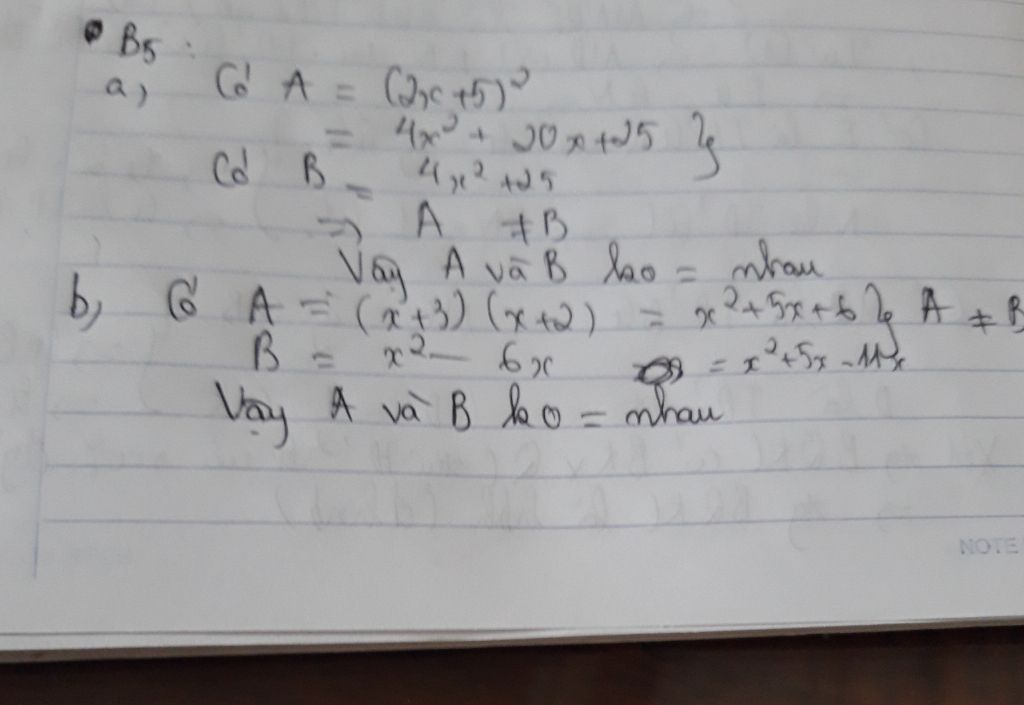 B5:
a, Có A = (2x+5)²
= 4x² + 20x+25 }
Có B = 4x² +25
=> A ≠ B
Vậy A và B ko = nhau
b, Có A = (x+3) (x+2) = x²+5x+6 } A ≠ B
B = x² - 6x = x²+5x - 11x
Vậy A và B ko = nhau
NOTE